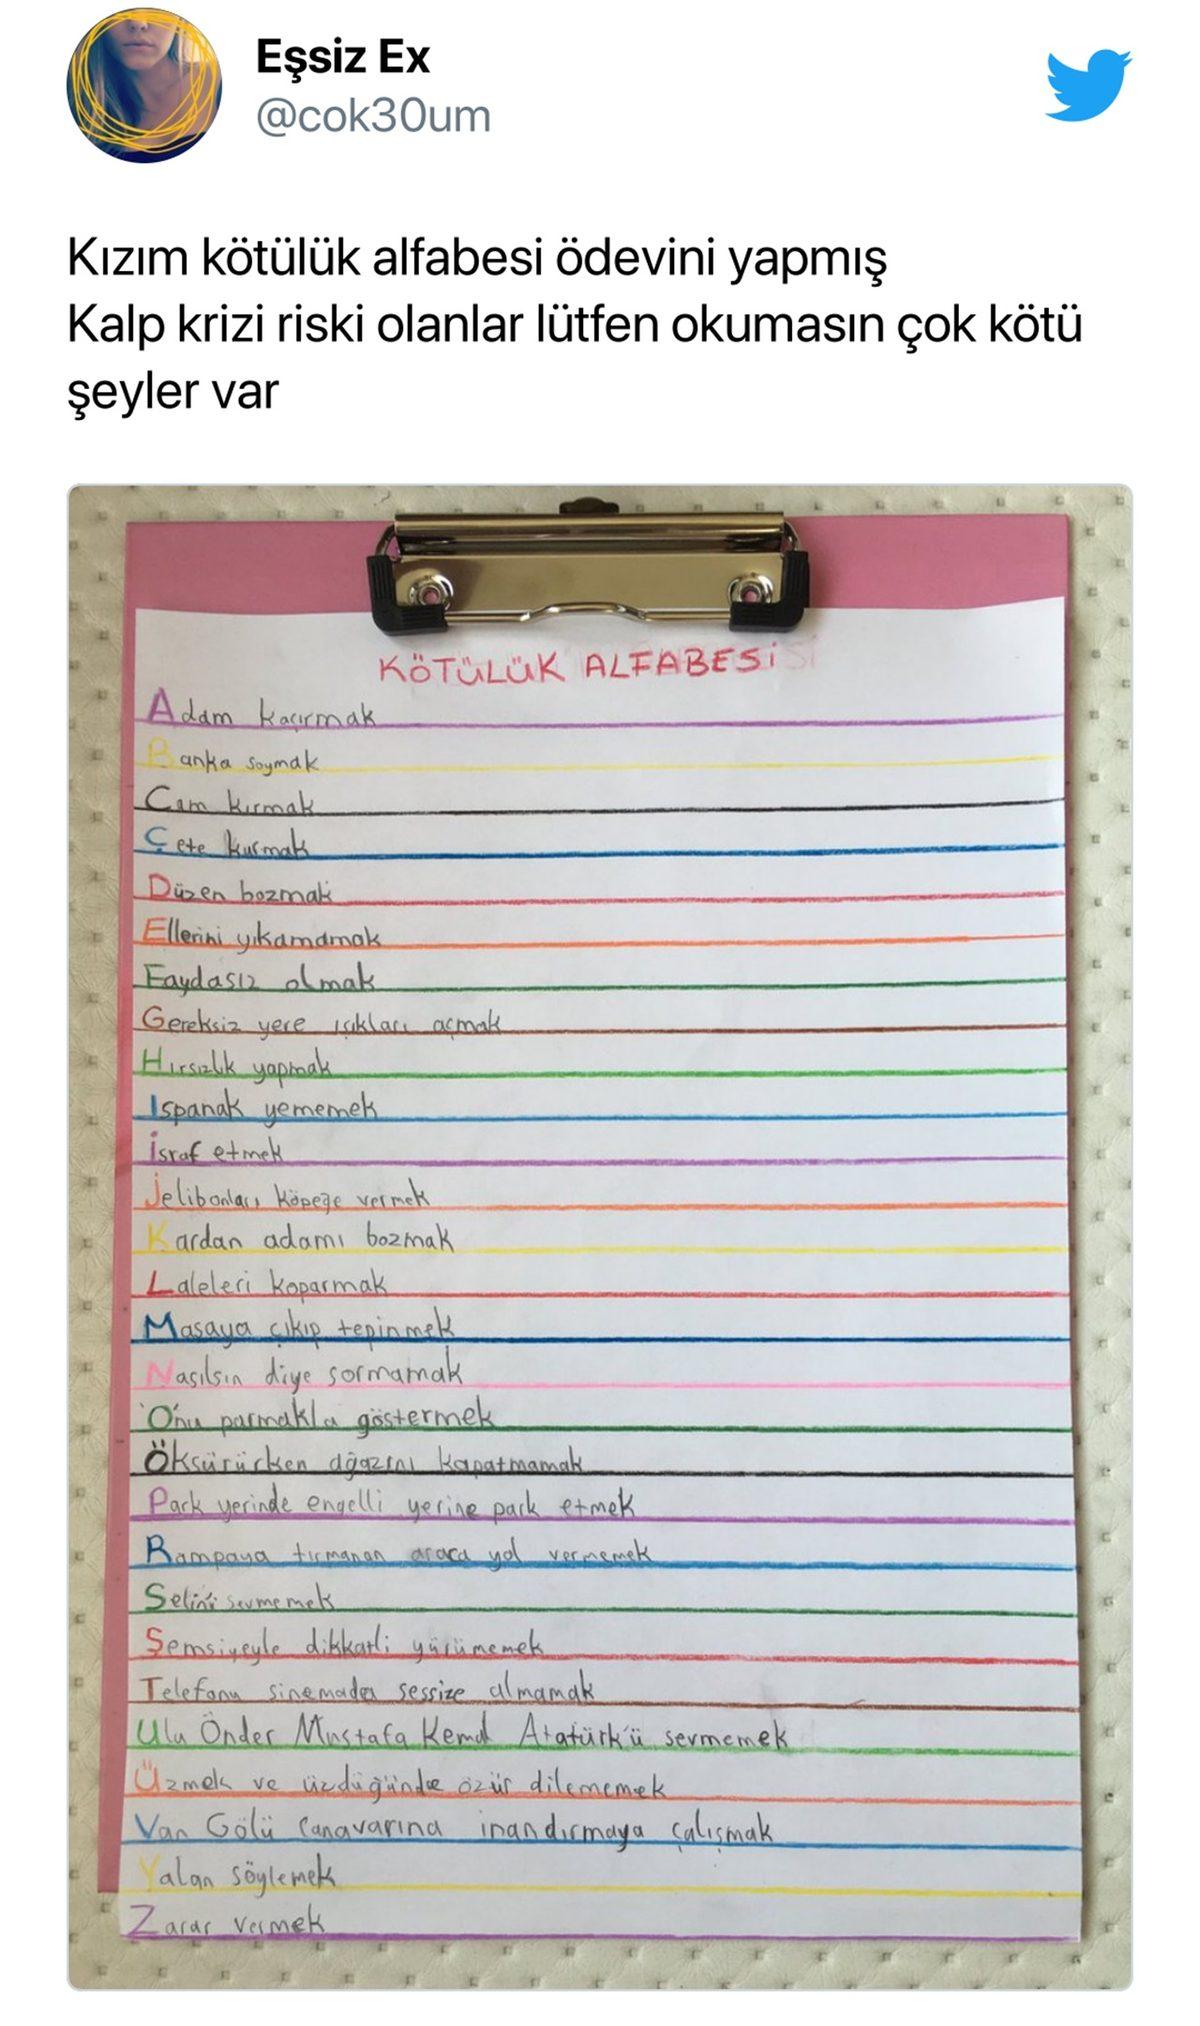 Eşsiz Ex
@cok30um
Kızım kötülük alfabesi ödevini yapmış
Kalp krizi riski olanlar lütfen okumasın çok kötü
şeyler var
KÖTÜLÜK ALFABESİ
Adam kaçırmak
Banka soymak
Cam kırmak
Çete kurmak
Düzen bozmak
Ellerini yıkamamak
Faydasız olmak
Gereksiz yere ışıkları açmak
Hırsızlık yapmak
Ispanak yememek
İsraf etmek
Jelibonları köpeğe vermek
Kardan adamı bozmak
Laleleri koparmak
Masaya çıkıp tepinmek
Nasılsın diye sormamak
Onu parmakla göstermek
Öksürürken ağazını kapatmamak
Park yerinde engelli yerine park etmek
Rampaya tırmanan araca yol vermemek
Selin'i sevmemek
Şemsiyeyle dikkatli yürümemek
Telefonu sinemada sessize almamak
Ulu Önder Mustafa Kemal Atatürk'ü sevmemek
Üzmek ve üzdüğünde özür dilememek
Van Gölü Canavarına inandırmaya çalışmak
Yalan söylemek
Zarar vermek